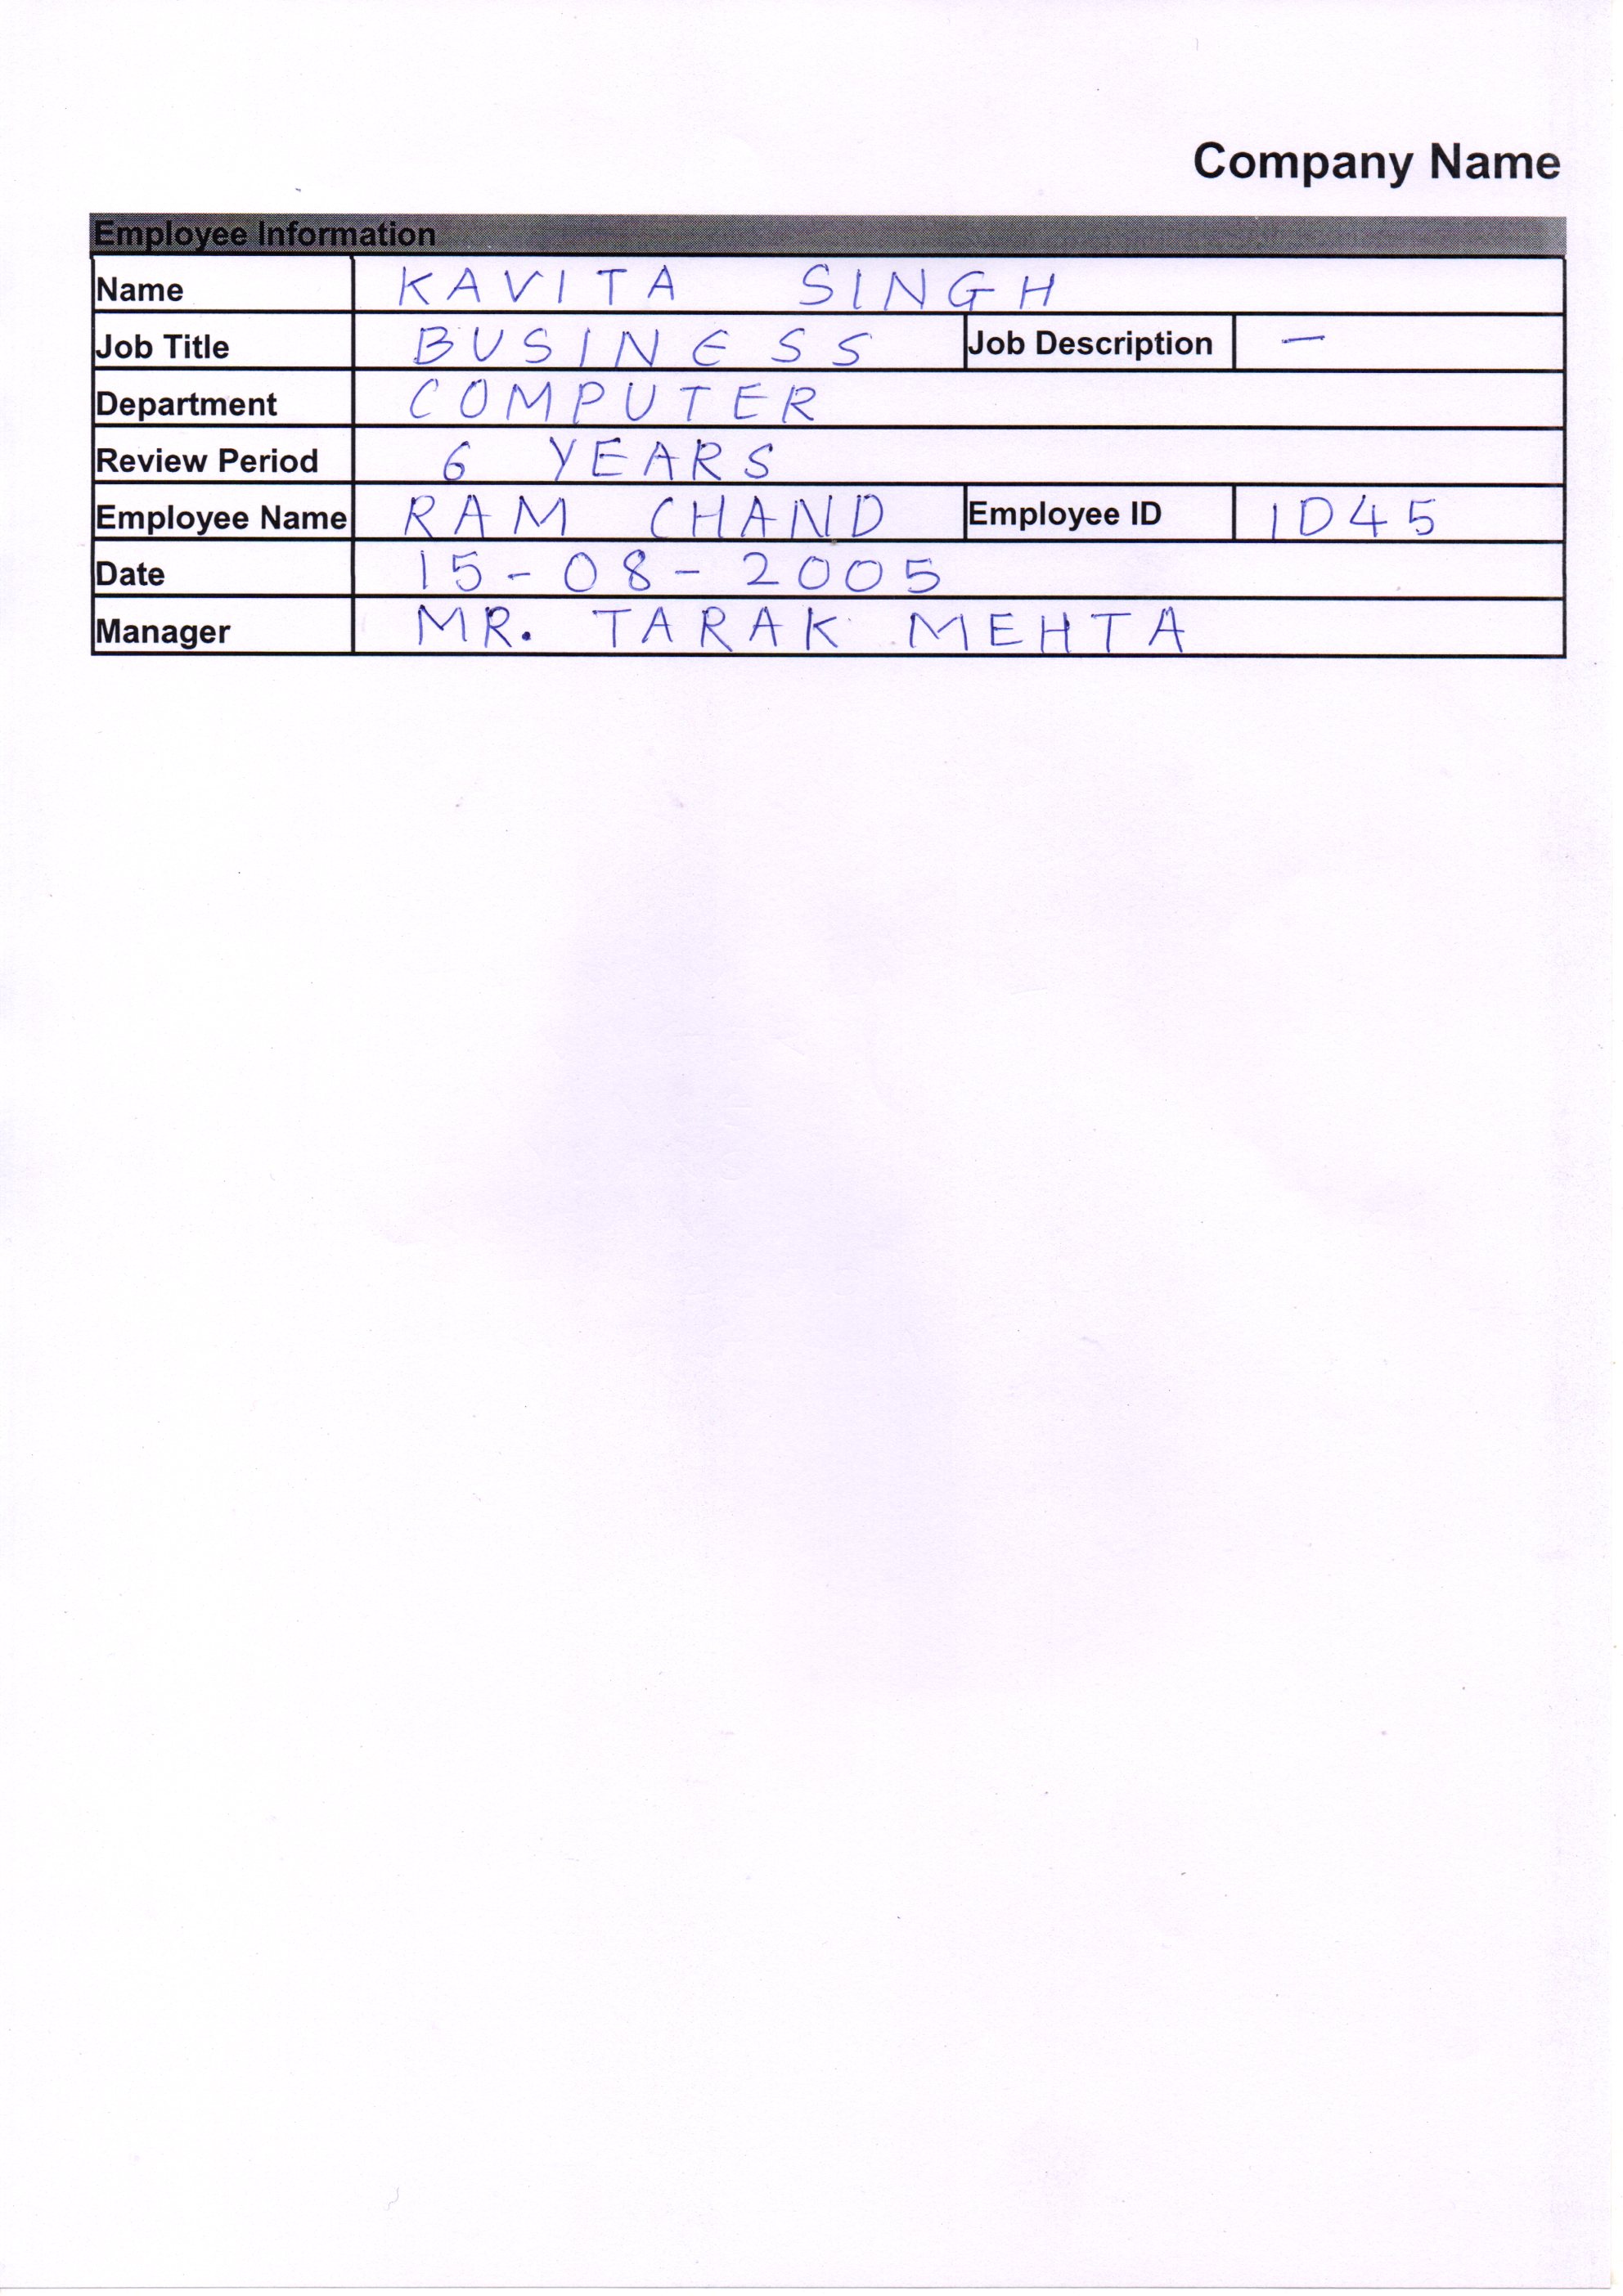 Company Name
Employee Information
Name KAVITA SINGH
Job Title BUSINESS Job Description —
Department COMPUTER
Review Period 6 YEARS
Employee Name RAM CHAND Employee ID ID45
Date 15-08-2005
Manager MR. TARAK MEHTA